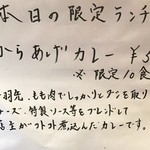 本日の限定ランチ
からあげカレー ¥5
※限定10食
手羽先、もも肉でしっかりとダシを取り
ーズ、特製ソース等をブレンドして
店主がコトコト煮込んだカレーです。